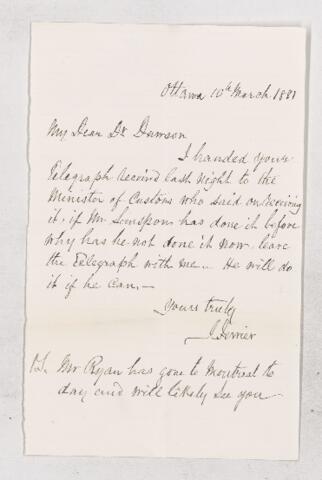 Ottawa 10th March 1881
My Dear Dr Dawson
I handed your
Telegraph received last night to the
Minister of Customs who said on receiving
it, if Mr Simpson has done it before
why has he not done it now, leave
the Telegraph with me – He will do
it if he can. –
Yours truly
J Ferrier
P.S. Mr Ryan has gone to Montreal to
day and will likely see you –